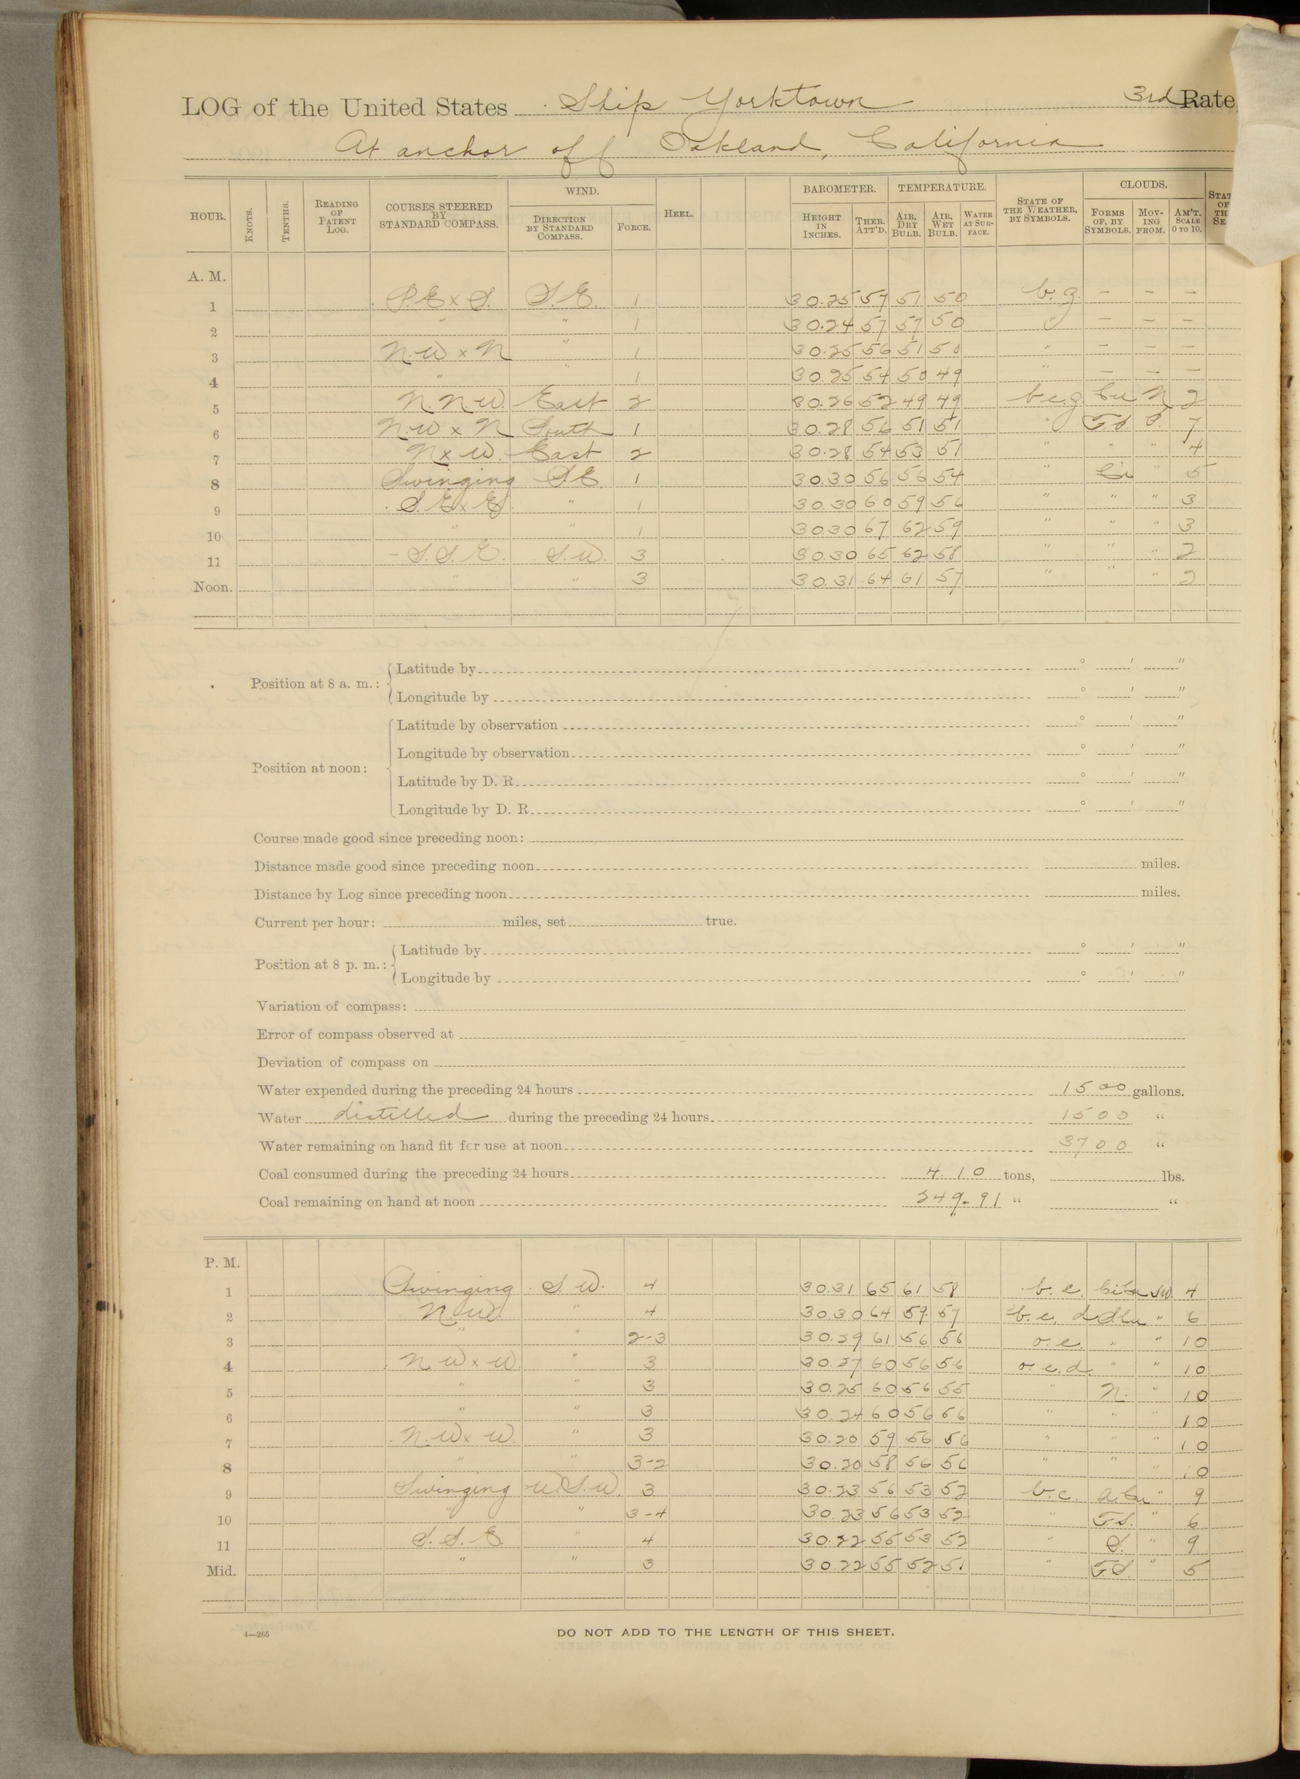 LOG of the United States Ship Yorktown 3rd Rate
At anchor off Oakland, California
HOUR. KNOTS. TENTHS. READING OF PATENT LOG. COURSES STEERED BY STANDARD COMPASS. WIND. DIRECTION BY STANDARD COMPASS. FORCE. HEEL. BAROMETER. HEIGHT IN INCHES. THER. ATT'D. TEMPERATURE. AIR, DRY BULB. AIR, WET BULB. WATER AT SURFACE. STATE OF THE WEATHER, BY SYMBOLS. CLOUDS. FORMS OF, BY SYMBOLS. MOVING FROM. AM'T. SCALE 0 TO 10.
A. M.
1 S.E x S. S.E. 1 30.25 57 51 50 b.g. — — —
2 " " 1 30.24 57 57 50 " — — —
3 N.W x N " 1 30.25 56 51 50 " — — —
4 " " 1 30.25 54 50 49 " — — —
5 N.N.W. East 2 30.26 52 49 49 b.c.g. Cu N 2
6 N.W x N South 1 30.28 56 51 51 " S. 7
7 N x W. East 2 30.28 54 53 51 " " " 4
8 Swinging SE 1 30.30 56 56 54 " Ci " 5
9 S.E x E. " 1 30.30 60 59 56 " " " 3
10 " " 1 30.30 67 62 59 " " " 3
11 S.S.E. S.W. 3 30.30 65 62 58 " " " 2
Noon. " " 3 30.31 64 61 57 " " " 2
Position at 8 a. m.: Latitude by ° ' "
Longitude by ° ' "
Position at noon: Latitude by observation ° ' "
Longitude by observation ° ' "
Latitude by D. R. ° ' "
Longitude by D. R. ° ' "
Course made good since preceding noon:
Distance made good since preceding noon miles.
Distance by Log since preceding noon miles.
Current per hour: miles, set true.
Position at 8 p. m.: Latitude by ° ' "
Longitude by ° ' "
Variation of compass:
Error of compass observed at
Deviation of compass on
Water expended during the preceding 24 hours 1500 gallons.
Water distilled during the preceding 24 hours 1500 "
Water remaining on hand fit for use at noon 3700 "
Coal consumed during the preceding 24 hours 4.10 tons, lbs.
Coal remaining on hand at noon 249.91 " "
P. M.
1 Swinging S.W. 4 30.31 65 61 58 b.c. SW 4
2 N.W. " 4 30.30 64 59 57 b.c. " 6
3 " " 2-3 30.29 61 56 56 o.c. " " 10
4 N W x W " 3 30.27 60 56 56 o.c.d. " " 10
5 " " 3 30.25 60 56 55 " N. " 10
6 " " 3 30.24 60 56 56 " " " 10
7 N.W x W. " 3 30.20 59 56 56 " " " 10
8 " " 3-2 30.20 58 56 56 " " " 10
9 Swinging W.S.W. 3 30.23 56 53 52 b.c. " 9
10 " " 3-4 30.23 56 53 52 " " 6
11 S.S.E " 4 30.22 55 53 52 " S. " 9
Mid. " " 3 30.22 55 52 51 " " 5
4—265 DO NOT ADD TO THE LENGTH OF THIS SHEET.